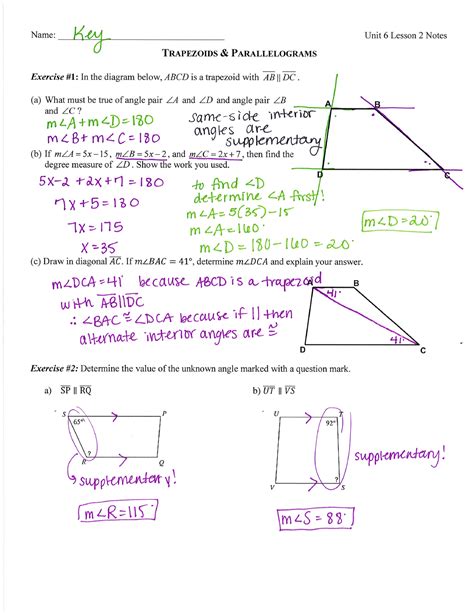 Name: Key
Unit 6 Lesson 2 Notes
TRAPEZOIDS & PARALLELOGRAMS
Exercise #1: In the diagram below, ABCD is a trapezoid with AB || DC.
(a) What must be true of angle pair ∠A and ∠D and angle pair ∠B
and ∠C ?
m∠A + m∠D = 180
m∠B + m∠C = 180
same-side interior
angles are
supplementary
A
B
D
C
(b) If m∠A = 5x−15, m∠B = 5x−2, and m∠C = 2x+7, then find the
degree measure of ∠D. Show the work you used.
5x-2 + 2x+7 = 180
7x+5 = 180
7x = 175
x = 35
to find ∠D
determine ∠A first!
m∠A = 5(35)-15
m∠A = 160°
m∠D = 180-160 = 20°
m∠D = 20°
(c) Draw in diagonal AC. If m∠BAC = 41°, determine m∠DCA and explain your answer.
m∠DCA = 41° because ABCD is a trapezoid
with AB||DC
∴ ∠BAC ≅ ∠DCA because if || then
alternate interior angles are ≅
A
B
41°
41°
D
C
Exercise #2: Determine the value of the unknown angle marked with a question mark.
a) SP || RQ
b) UT || VS
S
P
65°
?
R
Q
supplementary!
m∠R = 115°
U
T
92°
?
V
S
supplementary!
m∠S = 88°